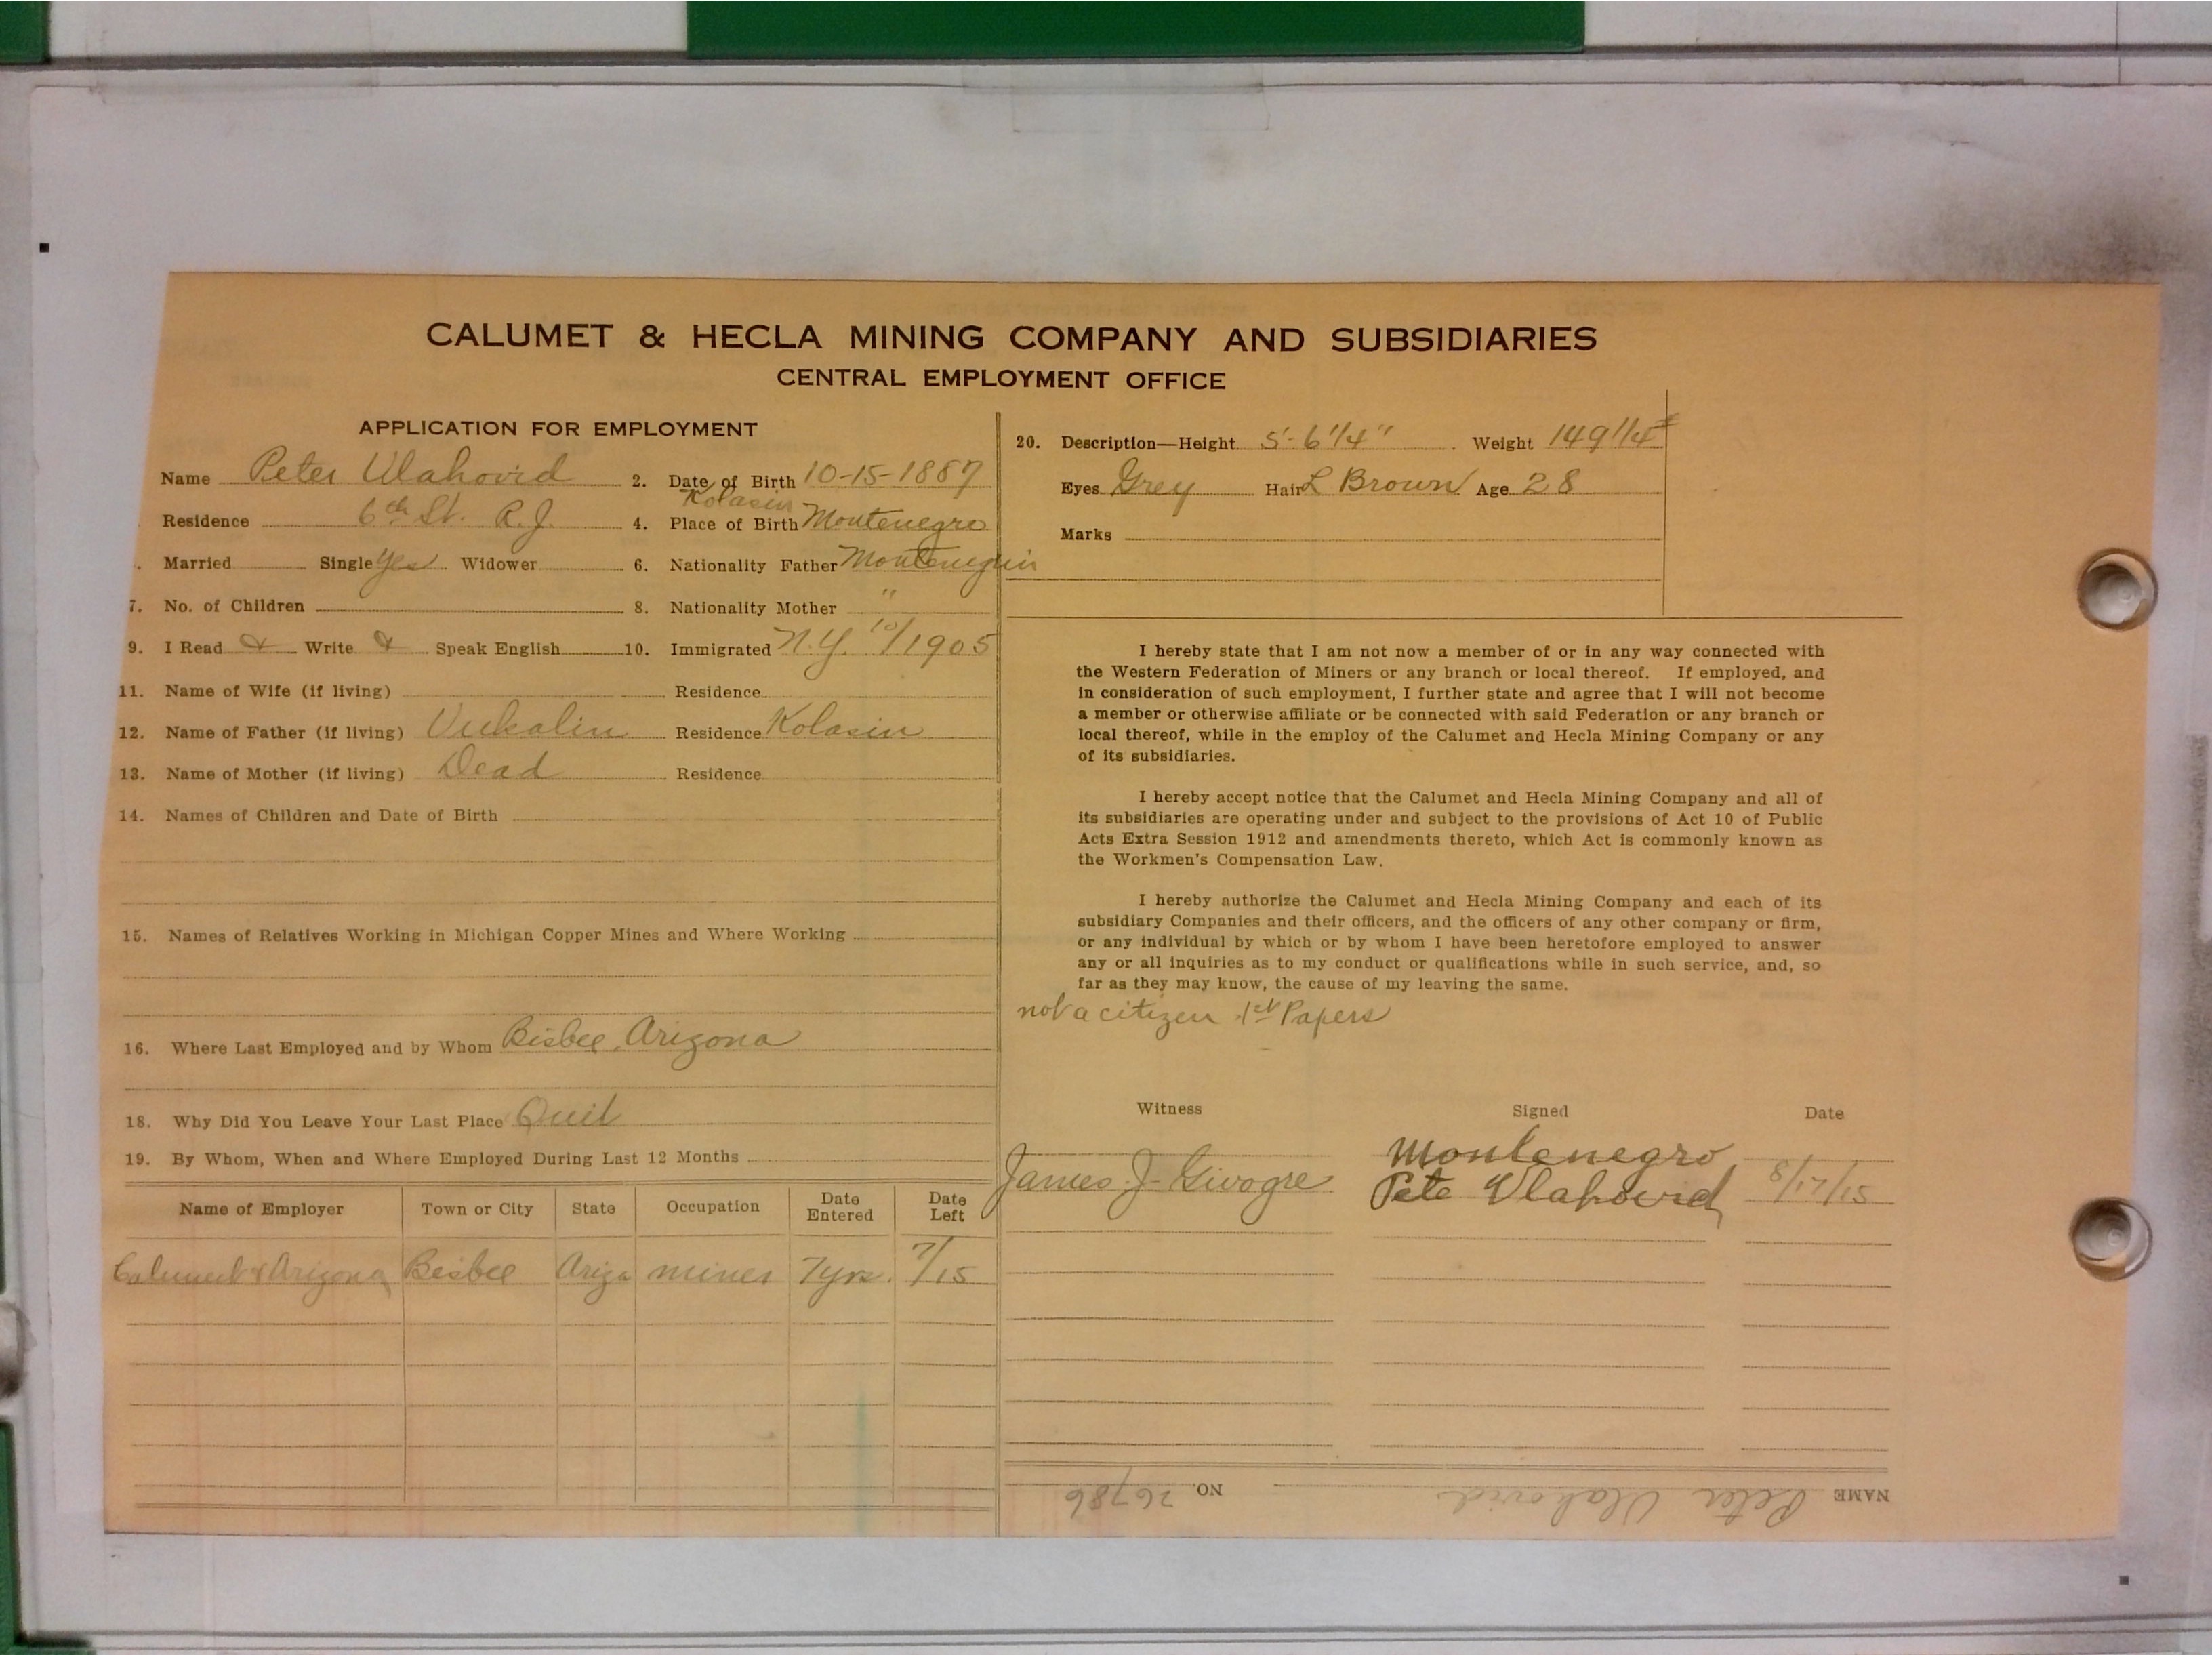 CALUMET & HECLA MINING COMPANY AND SUBSIDIARIES
CENTRAL EMPLOYMENT OFFICE
APPLICATION FOR EMPLOYMENT
Name Peter Vlahovid 2. Date of Birth 10-15-1887
Kolasin
Residence 6th St. R.J. 4. Place of Birth Montenegro
Married Single Yes Widower 6. Nationality Father Montenegrin
7. No. of Children 8. Nationality Mother "
9. I Read & Write & Speak English 10. Immigrated N.Y. 10/1905
11. Name of Wife (if living) Residence
12. Name of Father (if living) Vukalin Residence Kolasin
13. Name of Mother (if living) Dead Residence
14. Names of Children and Date of Birth
15. Names of Relatives Working in Michigan Copper Mines and Where Working
16. Where Last Employed and by Whom Bisbee, Arizona
18. Why Did You Leave Your Last Place Quit
19. By Whom, When and Where Employed During Last 12 Months
Name of Employer Town or City State Occupation Date Entered Date Left
Calumet & Arizona Bisbee Ariza miner 7yrs. 7/15
20. Description—Height 5'-6 1/4" Weight 149 1/4 #
Eyes Grey Hair L Brown Age 28
Marks
I hereby state that I am not now a member of or in any way connected with
the Western Federation of Miners or any branch or local thereof. If employed, and
in consideration of such employment, I further state and agree that I will not become
a member or otherwise affiliate or be connected with said Federation or any branch or
local thereof, while in the employ of the Calumet and Hecla Mining Company or any
of its subsidiaries.
I hereby accept notice that the Calumet and Hecla Mining Company and all of
its subsidiaries are operating under and subject to the provisions of Act 10 of Public
Acts Extra Session 1912 and amendments thereto, which Act is commonly known as
the Workmen's Compensation Law.
I hereby authorize the Calumet and Hecla Mining Company and each of its
subsidiary Companies and their officers, and the officers of any other company or firm,
or any individual by which or by whom I have been heretofore employed to answer
any or all inquiries as to my conduct or qualifications while in such service, and, so
far as they may know, the cause of my leaving the same.
not a citizen 1st Papers
Witness Signed Date
Montenegro
James J. Givogre Pete Vlahovid 8/17/15
NAME Peter Vlahovid NO. 26786